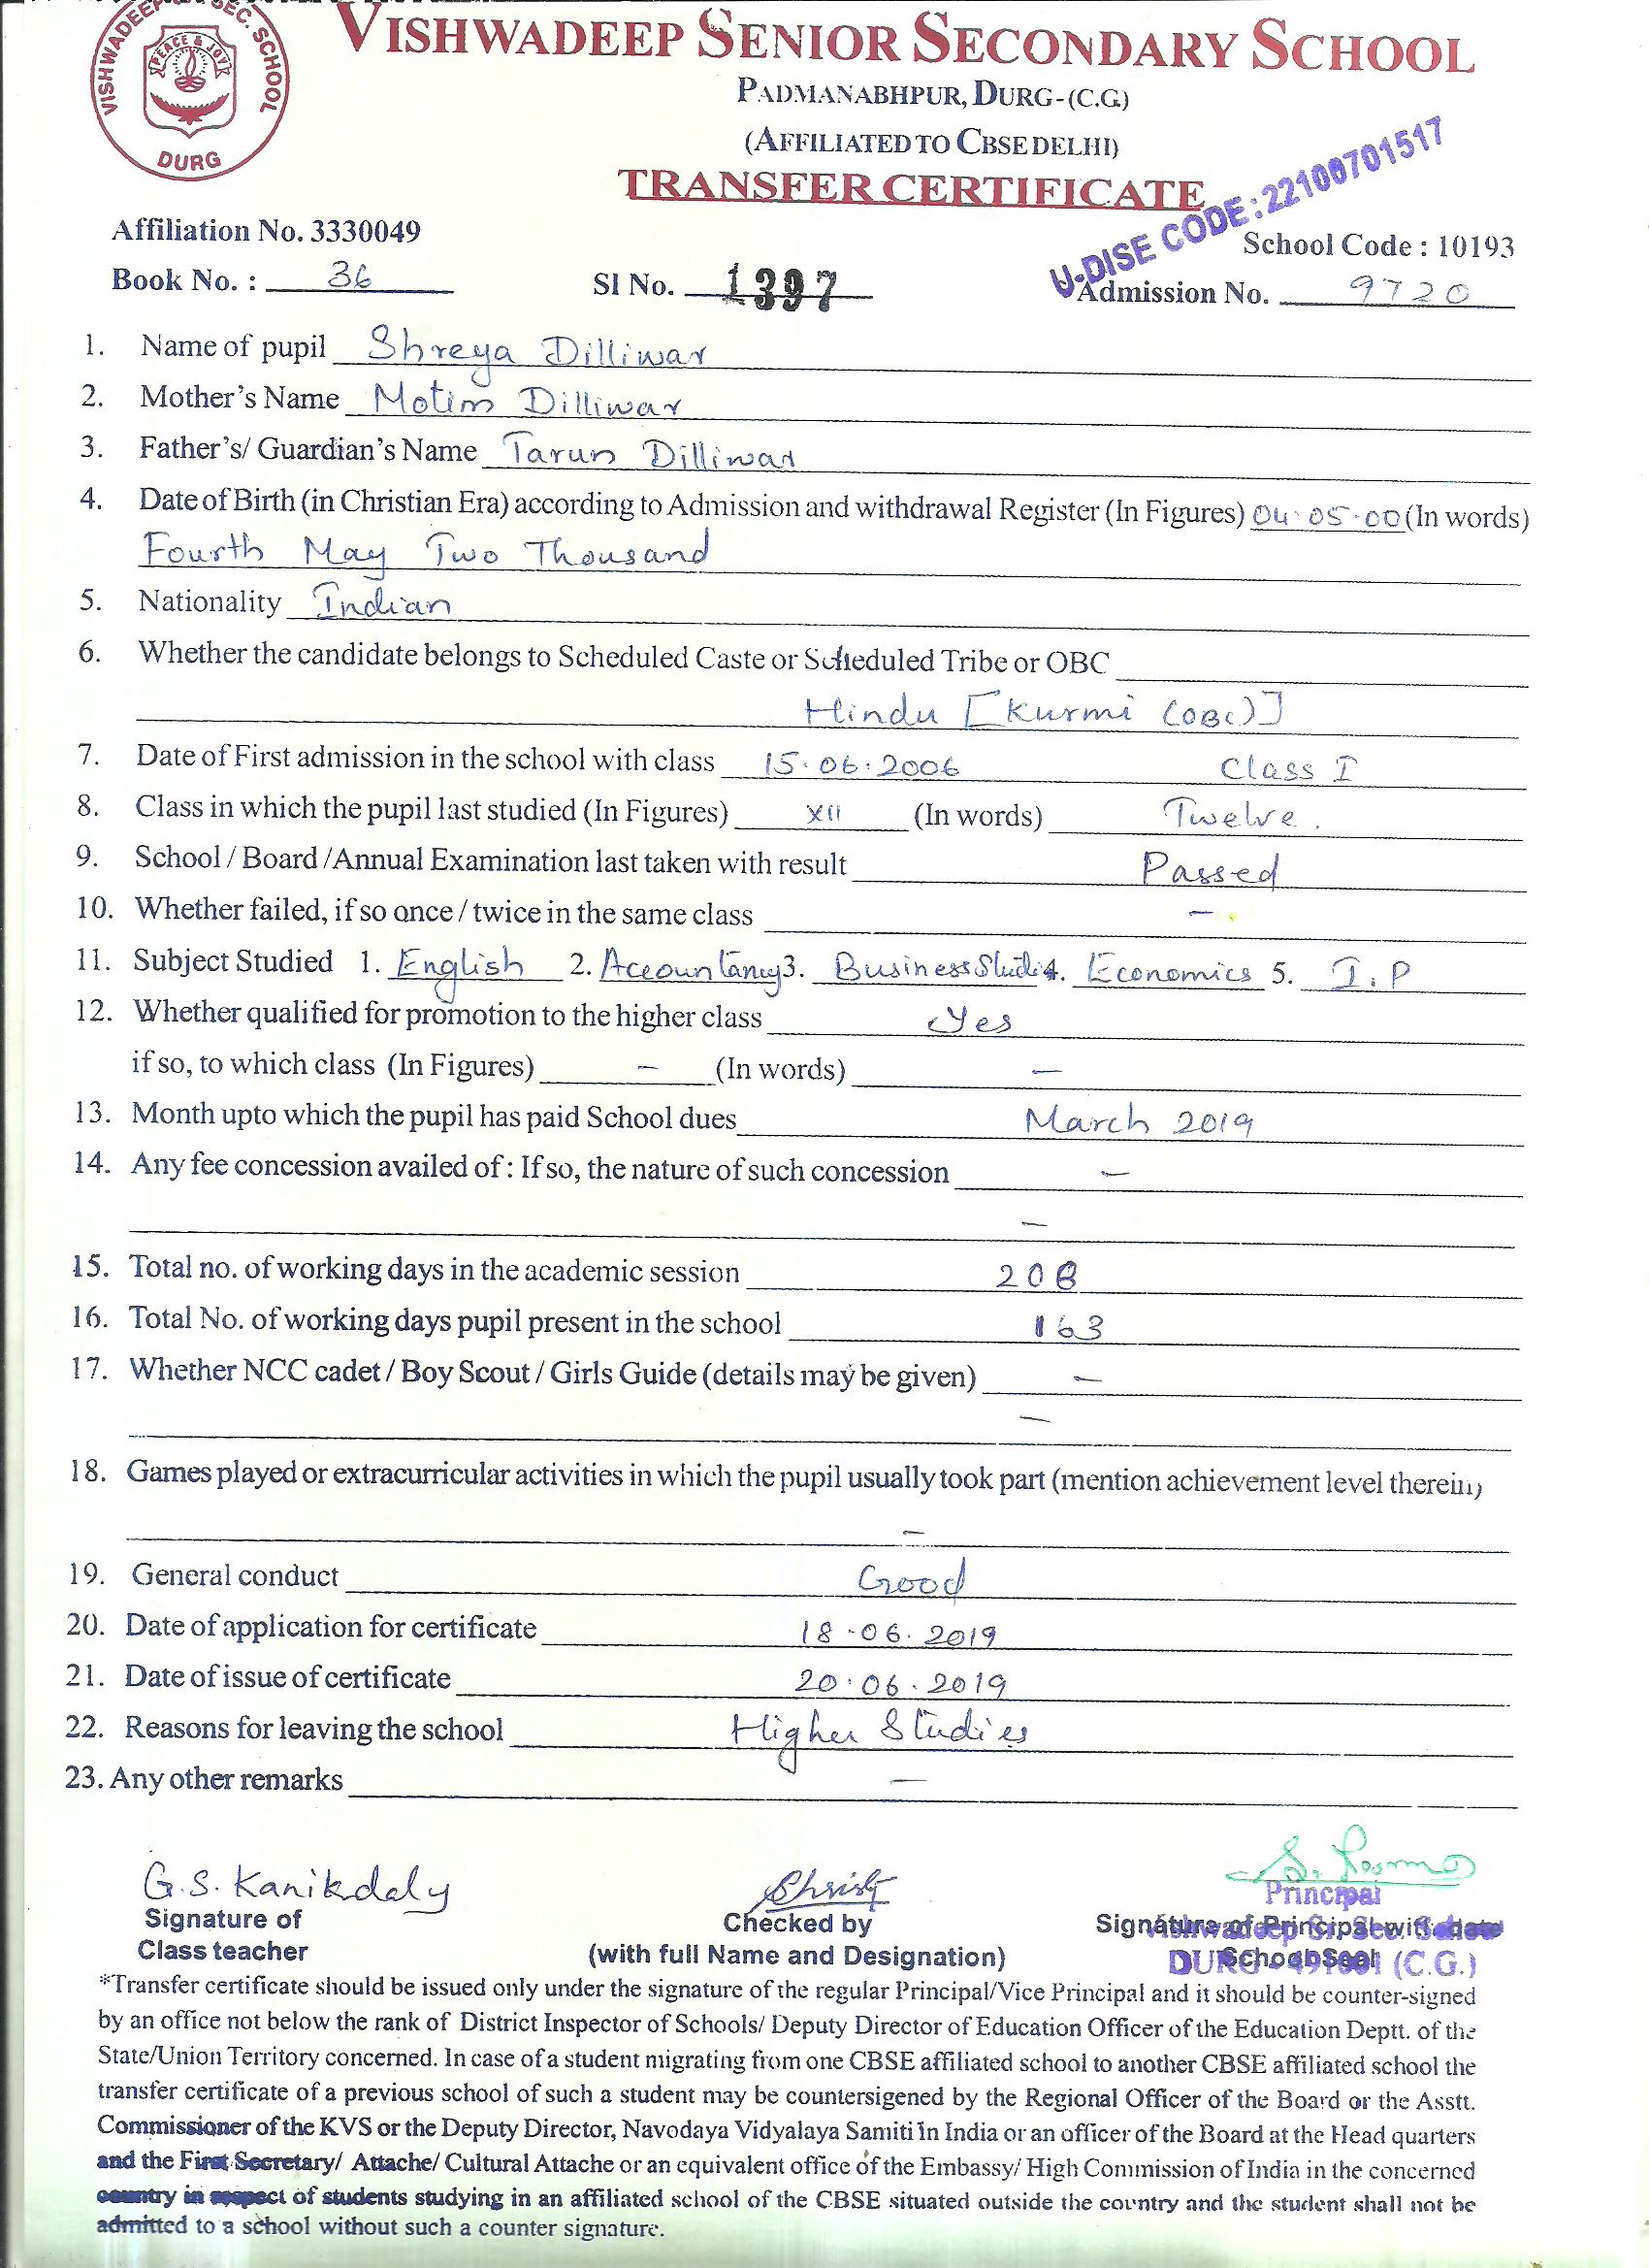 VISHWADEEP SR. SEC. SCHOOL
PEACE & JOY
DURG
VISHWADEEP SENIOR SECONDARY SCHOOL
PADMANABHPUR, DURG-(C.G.)
(AFFILIATED TO CBSE DELHI)
TRANSFER CERTIFICATE
U-DISE CODE: 22100701517
Affiliation No. 3330049 School Code : 10193
Book No. : 36 Sl No. 1397 Admission No. 9720
1. Name of pupil Shreya Dilliwar
2. Mother's Name Motim Dilliwar
3. Father's/ Guardian's Name Tarun Dilliwar
4. Date of Birth (in Christian Era) according to Admission and withdrawal Register (In Figures) 04.05.00 (In words)
Fourth May Two Thousand
5. Nationality Indian
6. Whether the candidate belongs to Scheduled Caste or Scheduled Tribe or OBC
Hindu [Kurmi (OBC)]
7. Date of First admission in the school with class 15.06.2006 Class I
8. Class in which the pupil last studied (In Figures) XII (In words) Twelve.
9. School / Board /Annual Examination last taken with result Passed
10. Whether failed, if so once / twice in the same class –
11. Subject Studied 1. English 2. Accountancy 3. Business Studies 4. Economics 5. I.P
12. Whether qualified for promotion to the higher class Yes
if so, to which class (In Figures) – (In words) –
13. Month upto which the pupil has paid School dues March 2019
14. Any fee concession availed of : If so, the nature of such concession –
–
15. Total no. of working days in the academic session 208
16. Total No. of working days pupil present in the school 163
17. Whether NCC cadet / Boy Scout / Girls Guide (details may be given) –
–
18. Games played or extracurricular activities in which the pupil usually took part (mention achievement level therein)
–
19. General conduct Good
20. Date of application for certificate 18.06.2019
21. Date of issue of certificate 20.06.2019
22. Reasons for leaving the school Higher Studies
23. Any other remarks –
G.S. Kanikdaly Christy
Principal
Signature of Checked by Signature of Principal with date
Class teacher (with full Name and Designation) School Seal
Vishwadeep Sr. Sec. School
DURG - 491001 (C.G.)
*Transfer certificate should be issued only under the signature of the regular Principal/Vice Principal and it should be counter-signed
by an office not below the rank of District Inspector of Schools/ Deputy Director of Education Officer of the Education Deptt. of the
State/Union Territory concerned. In case of a student migrating from one CBSE affiliated school to another CBSE affiliated school the
transfer certificate of a previous school of such a student may be countersigened by the Regional Officer of the Board or the Asstt.
Commissioner of the KVS or the Deputy Director, Navodaya Vidyalaya Samiti in India or an officer of the Board at the Head quarters
and the First Secretary/ Attache/ Cultural Attache or an equivalent office of the Embassy/ High Commission of India in the concerned
country in respect of students studying in an affiliated school of the CBSE situated outside the country and the student shall not be
admitted to a school without such a counter signature.